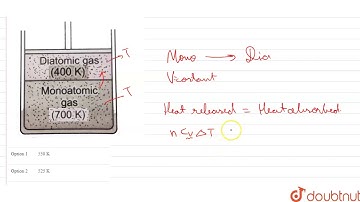 Diatomic gas
(400 K)
Monoatomic
gas
(700 K)
T
T
Mono → Dia
V constant
Heat released = Heat absorbed
n Cv ΔT
Option 1
Option 2
525 K
doubtnut